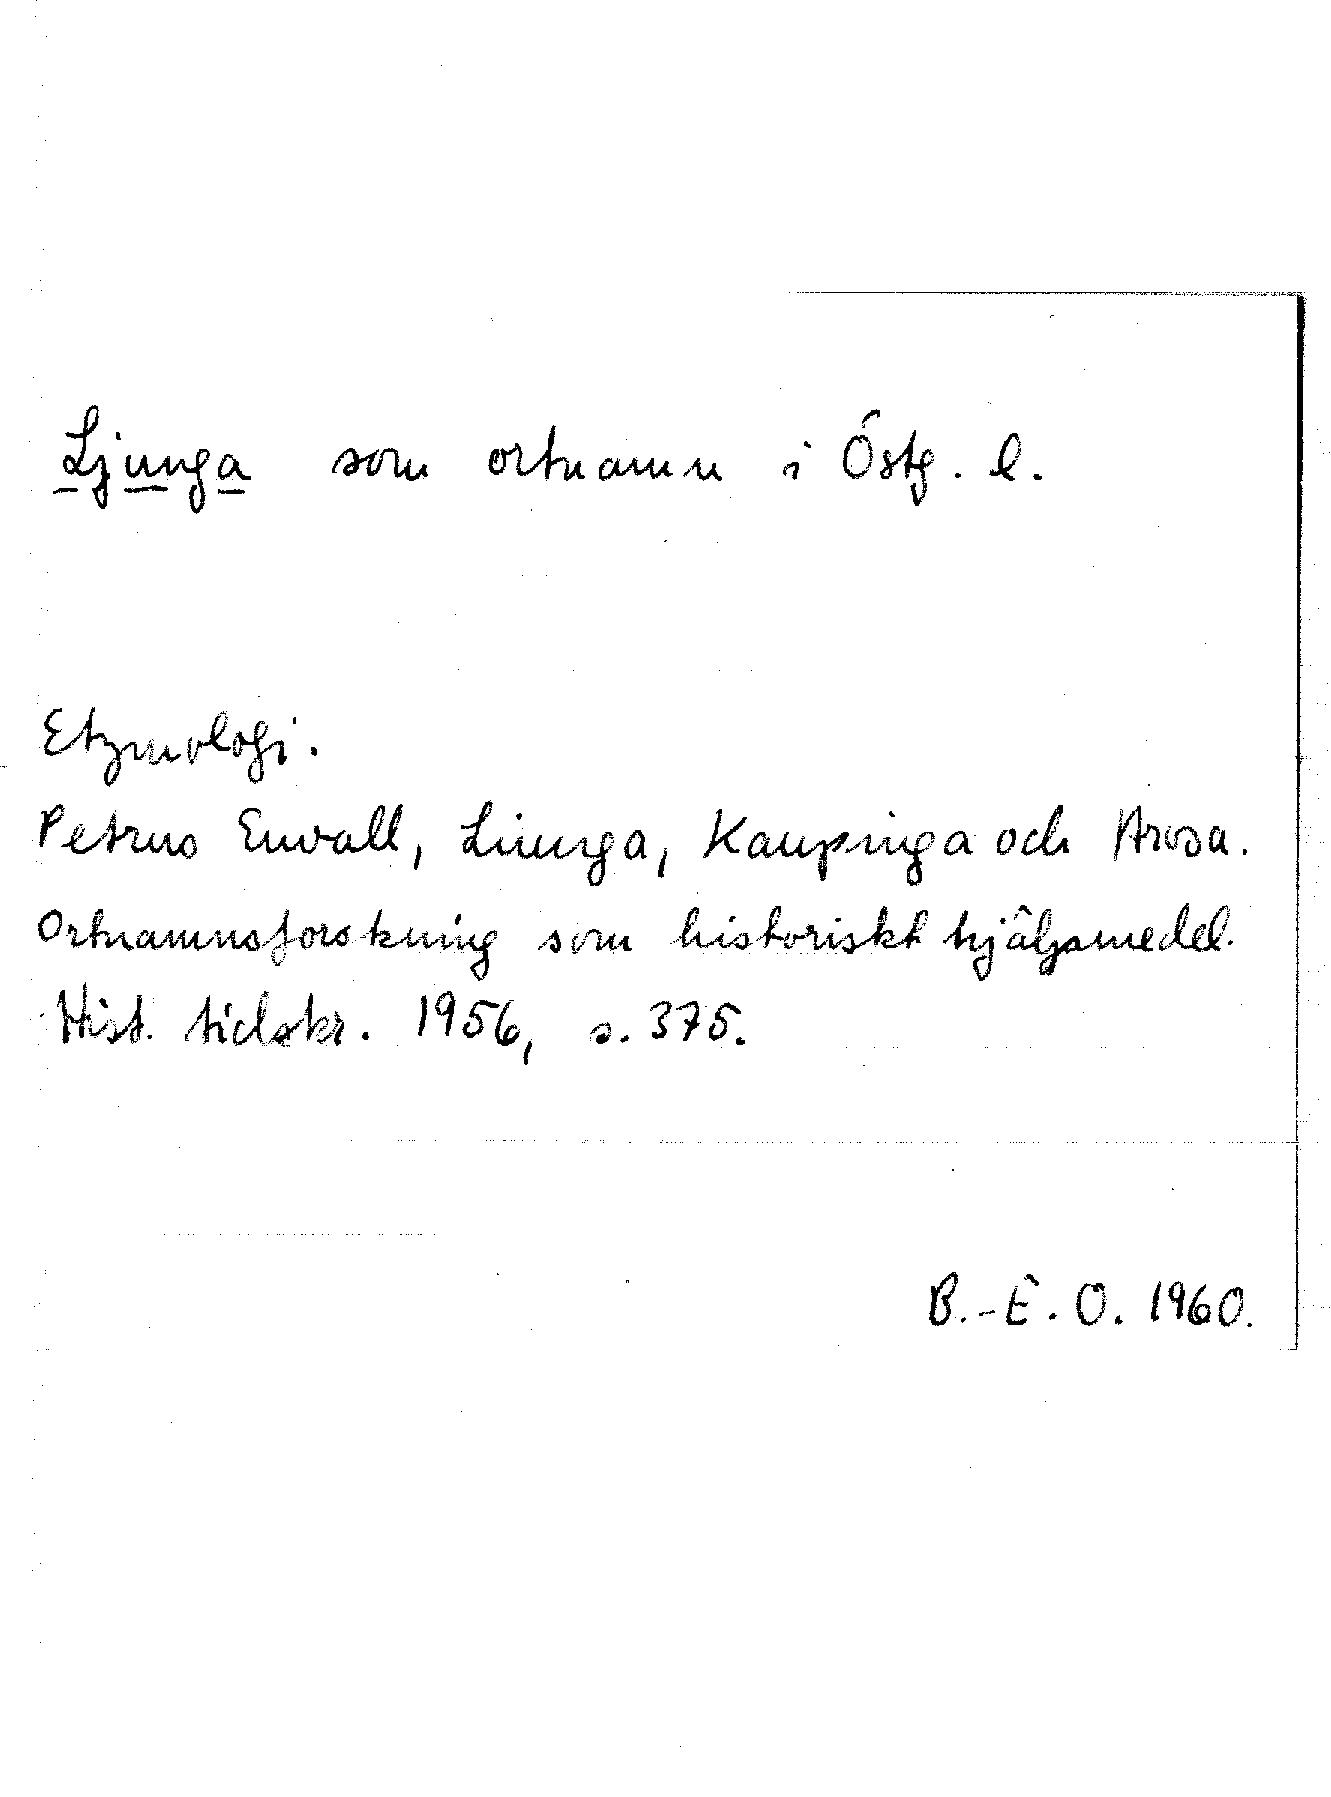 Ljunga som ortnamn i Östg. l.
Etymologi.
Petrus Envall, Liunga, Kaupinga och Arosa.
Ortnamnsforskning som historiskt hjälpmedel.
Hist. tidskr. 1956, s. 375.
B.-E. O. 1960.